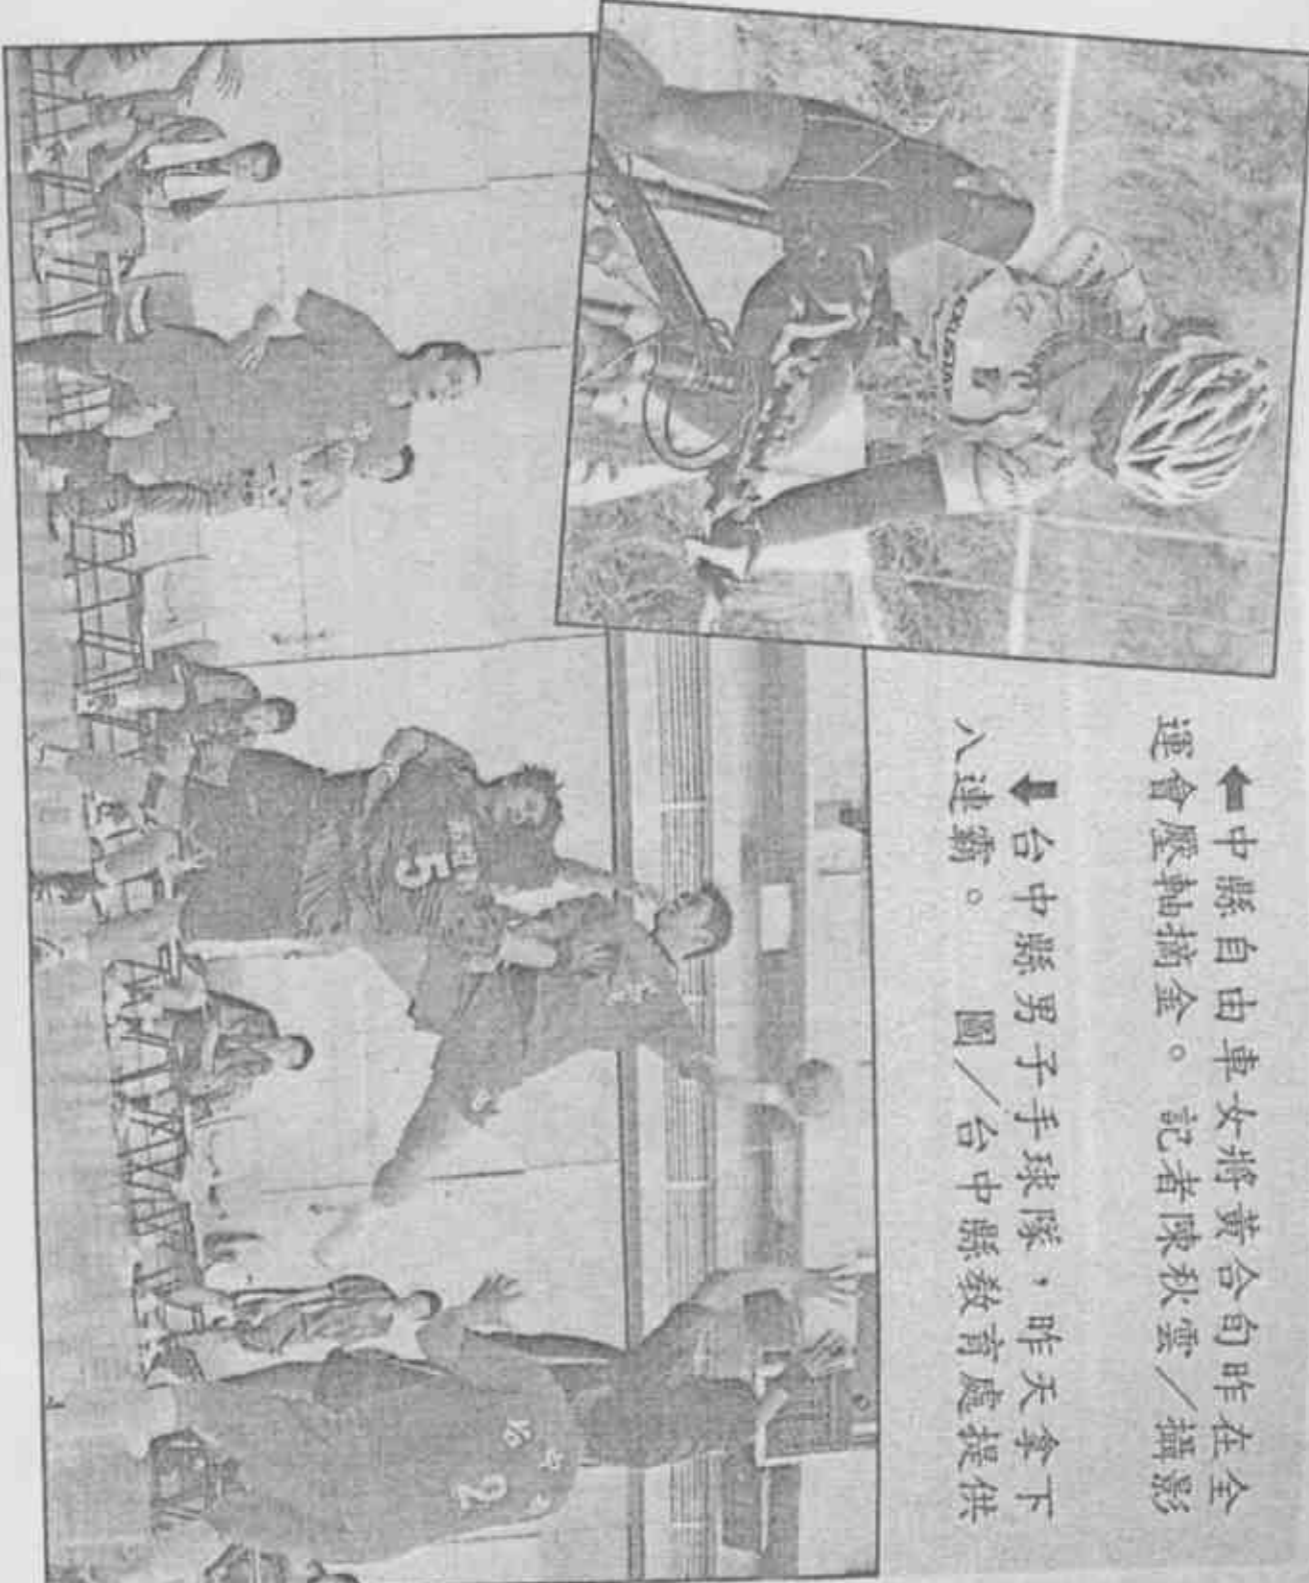 ←中縣自由車女將黃合句昨在全
運會壓軸摘金。 記者陳秋雲／攝影
↓台中縣男子手球隊，昨天拿下
八連霸。 圖／台中縣教育處提供
5
2